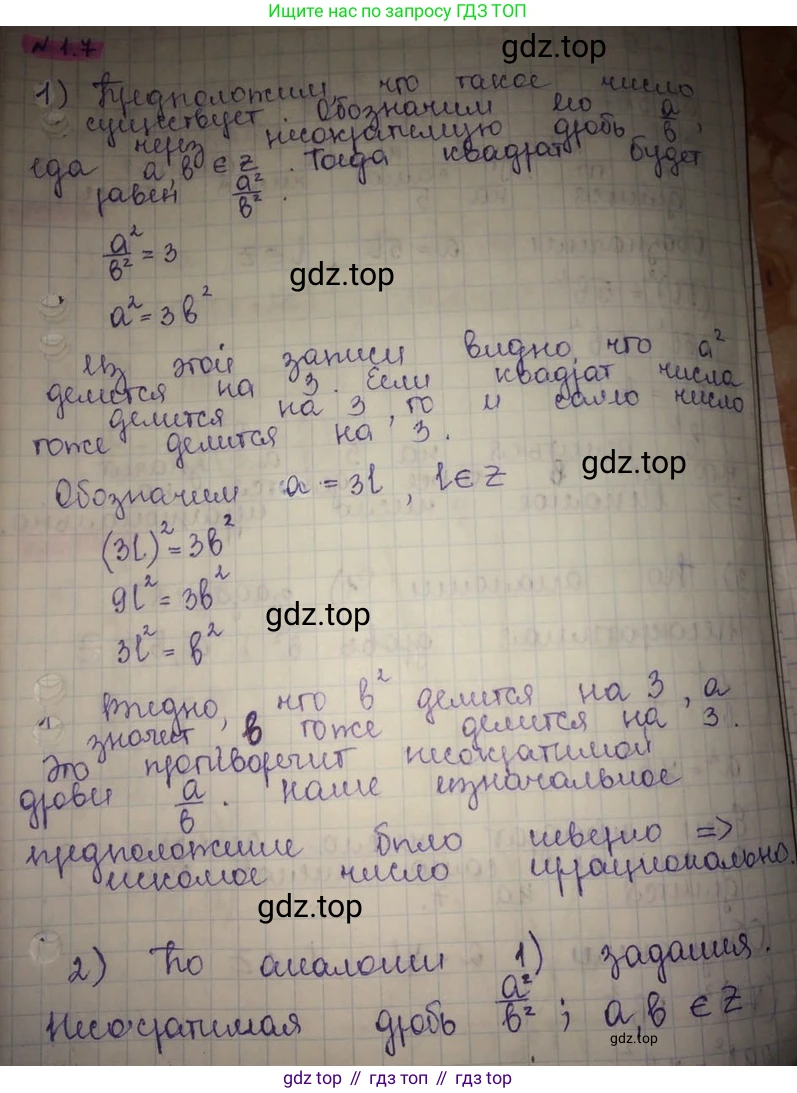 Ищите нас по запросу ГДЗ ТОП
№ 1.7
gdz.top
1) Предположим, что такое число
существует. Обозначим его
через несократимую дробь a/b,
где a, b ∈ Z. Тогда квадрат будет
равен a²/b².
a²/b² = 3
gdz.top
a² = 3b²
Из этой записи видно, что a²
делится на 3. Если квадрат числа
делится на 3, то и само число
тоже делится на 3.
gdz.top
Обозначим a = 3l, l ∈ Z
(3l)² = 3b²
9l² = 3b²
gdz.top
3l² = b²
Видно, что b² делится на 3, а
значит b тоже делится на 3.
Это противоречит несократимой
дроби a/b. Наше изначальное
предположение было неверно =>
искомое число иррационально.
gdz.top
2) По аналогии 1) задания.
Несократимая дробь a²/b²; a, b ∈ Z
gdz.top
gdz top // гдз топ // gdz.top